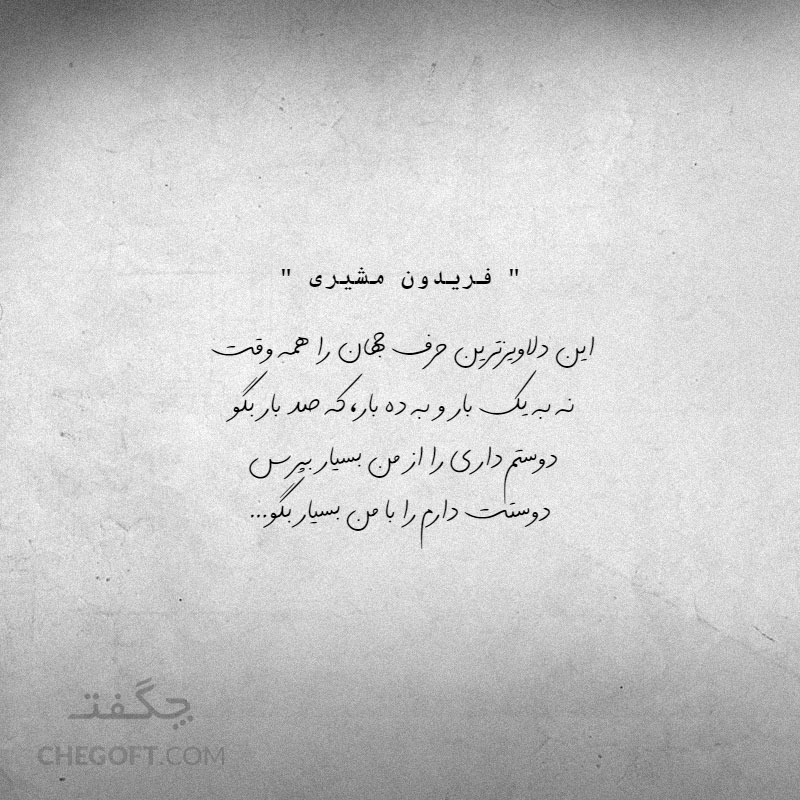 " فریدون مشیری "
این دلاویزترین حرف جهان را همه وقت
نه به یک بار و به ده بار، که صد بار بگو
دوستم داری را از من بسیار بپرس
دوستت دارم را با من بسیار بگو...
چگفت
CHEGOFT.COM